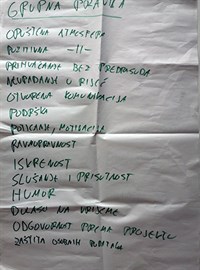 GRUPNA PRAVILA
OPUŠTENA ATMOSFERA
POZITIVNA -II-
PRIHVAĆANJE BEZ PREDRASUDA
NEUPADANJE U RIJEČ
OTVORENA KOMUNIKACIJA
PODRŠKA
POTICANJE, MOTIVACIJA
RAVNOPRAVNOST
ISKRENOST
SLUŠANJE I PRISUTNOST
HUMOR
DOLAZAK NA VRIJEME
ODGOVORNOST PREMA PROJEKTU
ZAŠTITA OSOBNIH PODATAKA